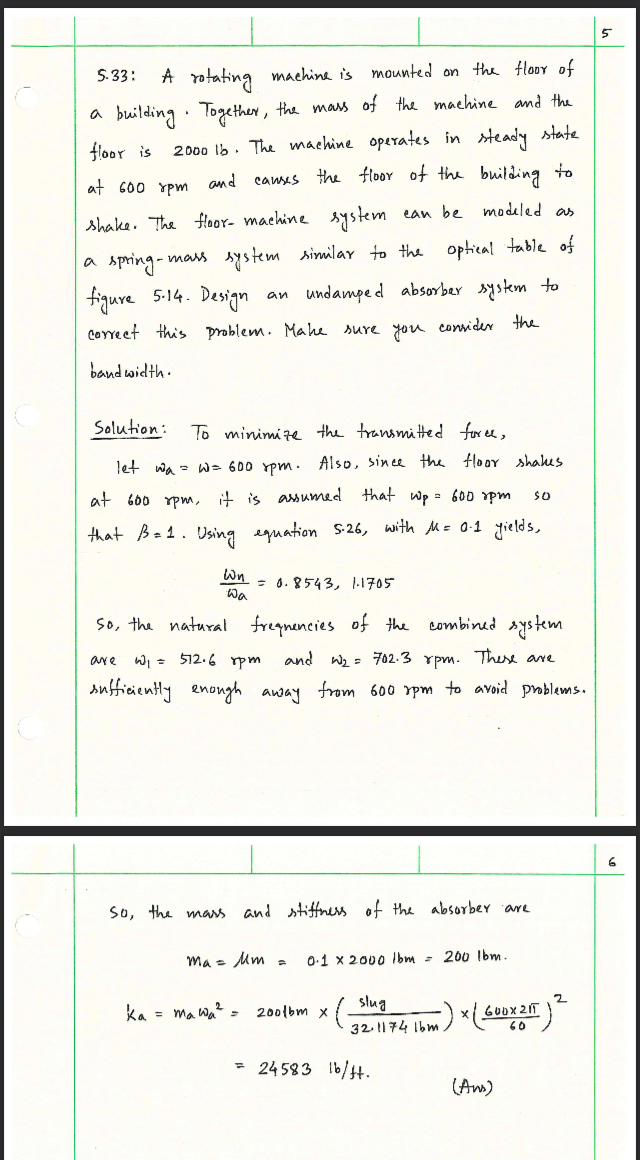 5
5.33: A rotating machine is mounted on the floor of
a building. Together, the mass of the machine and the
floor is 2000 lb. The machine operates in steady state
at 600 rpm and causes the floor of the building to
shake. The floor-machine system can be modeled as
a spring-mass system similar to the optical table of
figure 5.14. Design an undamped absorber system to
correct this problem. Make sure you consider the
bandwidth.
Solution: To minimize the transmitted force,
let ωa = ω = 600 rpm. Also, since the floor shakes
at 600 rpm, it is assumed that ωp = 600 rpm so
that β = 1. Using equation 5.26, with μ = 0.1 yields,
ωn/ωa = 0.8543, 1.1705
So, the natural frequencies of the combined system
are ω1 = 512.6 rpm and ω2 = 702.3 rpm. These are
sufficiently enough away from 600 rpm to avoid problems.
6
So, the mass and stiffness of the absorber are
ma = μm = 0.1 × 2000 lbm = 200 lbm.
ka = ma ωa² = 200lbm × (slug/32.1174 lbm) × (600×2π/60)²
= 24583 lb/ft.
(Ans)